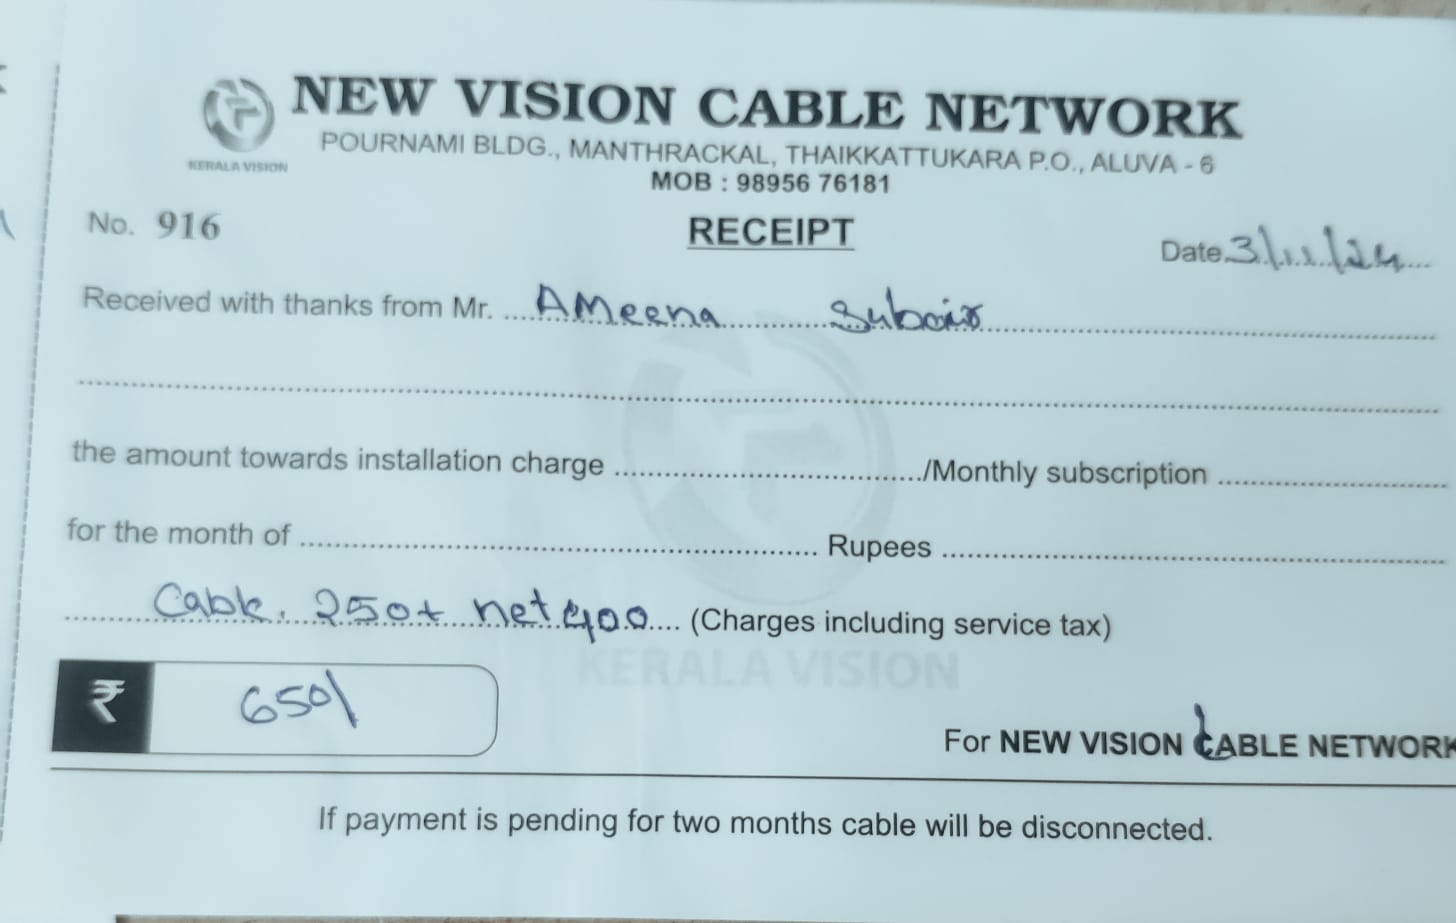 NEW VISION CABLE NETWORK
KERALA VISION
POURNAMI BLDG., MANTHRACKAL, THAIKKATTUKARA P.O., ALUVA - 6
MOB : 98956 76181
No. 916
RECEIPT
Date 3/11/24
Received with thanks from Mr. AMeena Subair
the amount towards installation charge ............ /Monthly subscription ............
for the month of ............ Rupees ............
Cable. 250+ net 400 (Charges including service tax)
KERALA VISION
₹ 650/
For NEW VISION CABLE NETWORK
If payment is pending for two months cable will be disconnected.